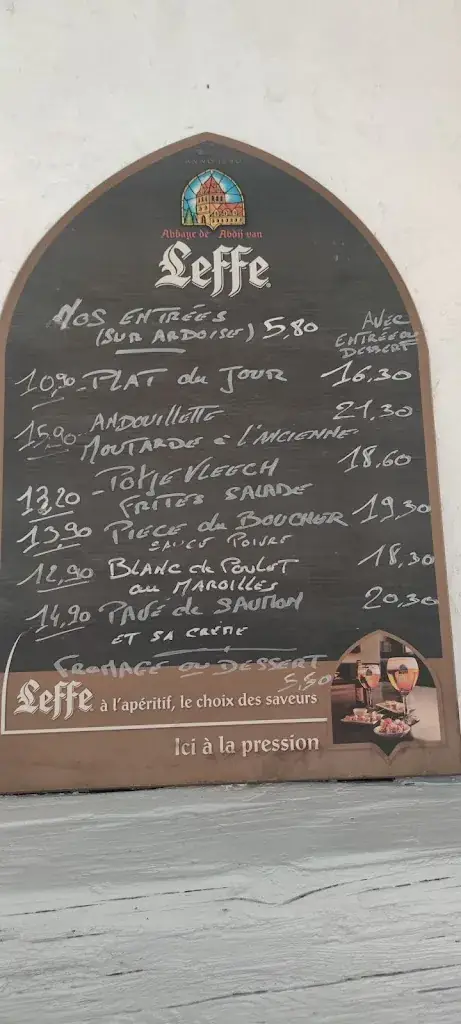 Abbaye de Abdij van
Leffe
NOS ENTRÉES
(SUR ARDOISE) 5,80
AVEC
ENTRÉE OU
DESSERT
10,90 - PLAT du JOUR 16,30
15,90 ANDOUILLETTE 21,30
MOUTARDE à l'ANCIENNE
13,20 - POTJEVLEECH 18,60
FRITES SALADE
13,90 PIECE du BOUCHER 19,30
SAUCE POIVRE
12,90 BLANC de POULET 18,30
au MAROILLES
14,90 PAVÉ de SAUMON 20,30
ET SA CRÈME
FROMAGE OU DESSERT
5,50
Leffe à l'apéritif, le choix des saveurs
Ici à la pression